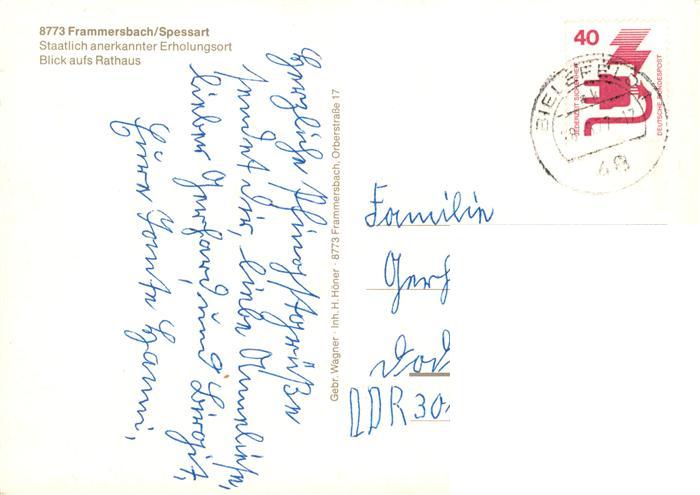 8773 Frammersbach/Spessart
Staatlich anerkannter Erholungsort
Blick aufs Rathaus
Herzliche Pfingstgrüße
sendet Dir, liebe Annelise,
lieber Gerhard und Birgit,
Eure Tante Hanni,
Gebr. Wagner · Inh. H. Höner · 8773 Frammersbach, Orberstraße 17
40
JEDERZEIT SICHERHEIT
DEUTSCHE BUNDESPOST
BIELEFELD
48
Familie
Gerh
DDR 30